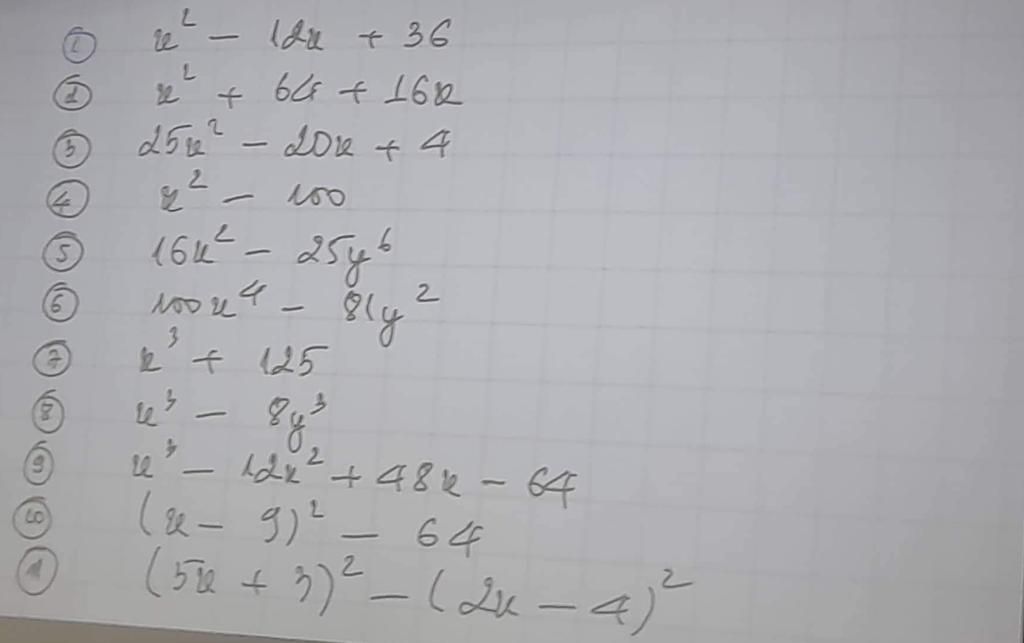 ① x² - 12x + 36
② x² + 64 + 16x
③ 25x² - 20x + 4
④ x² - 100
⑤ 16x² - 25y⁶
⑥ 100x⁴ - 81y²
⑦ x³ + 125
⑧ x³ - 8y³
⑨ x³ - 12x² + 48x - 64
⑩ (x - 9)² - 64
① (5x + 3)² - (2x - 4)²